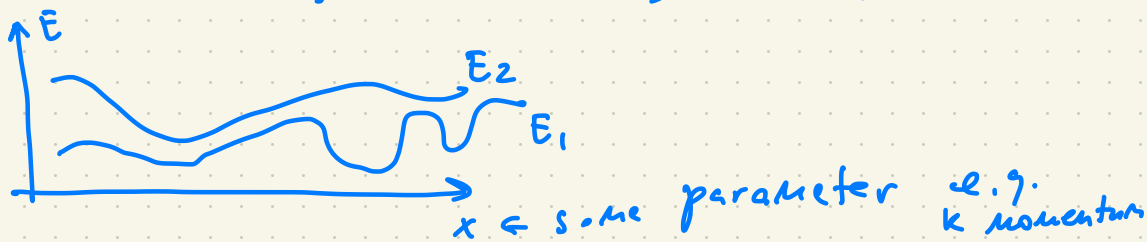 E
E2
E1
x ← some parameter e.g.
k momentum